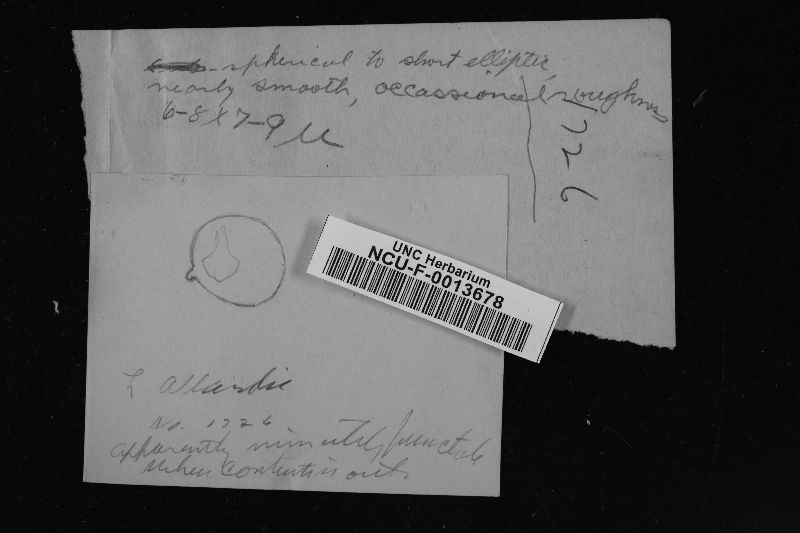 -spherical to short elliptic,
nearly smooth, occassional roughness
6-8 x 7-9 µ
1726
UNC Herbarium
NCU-F-0013678
L
No. 1726
apparently minutely punctate
when contents is out